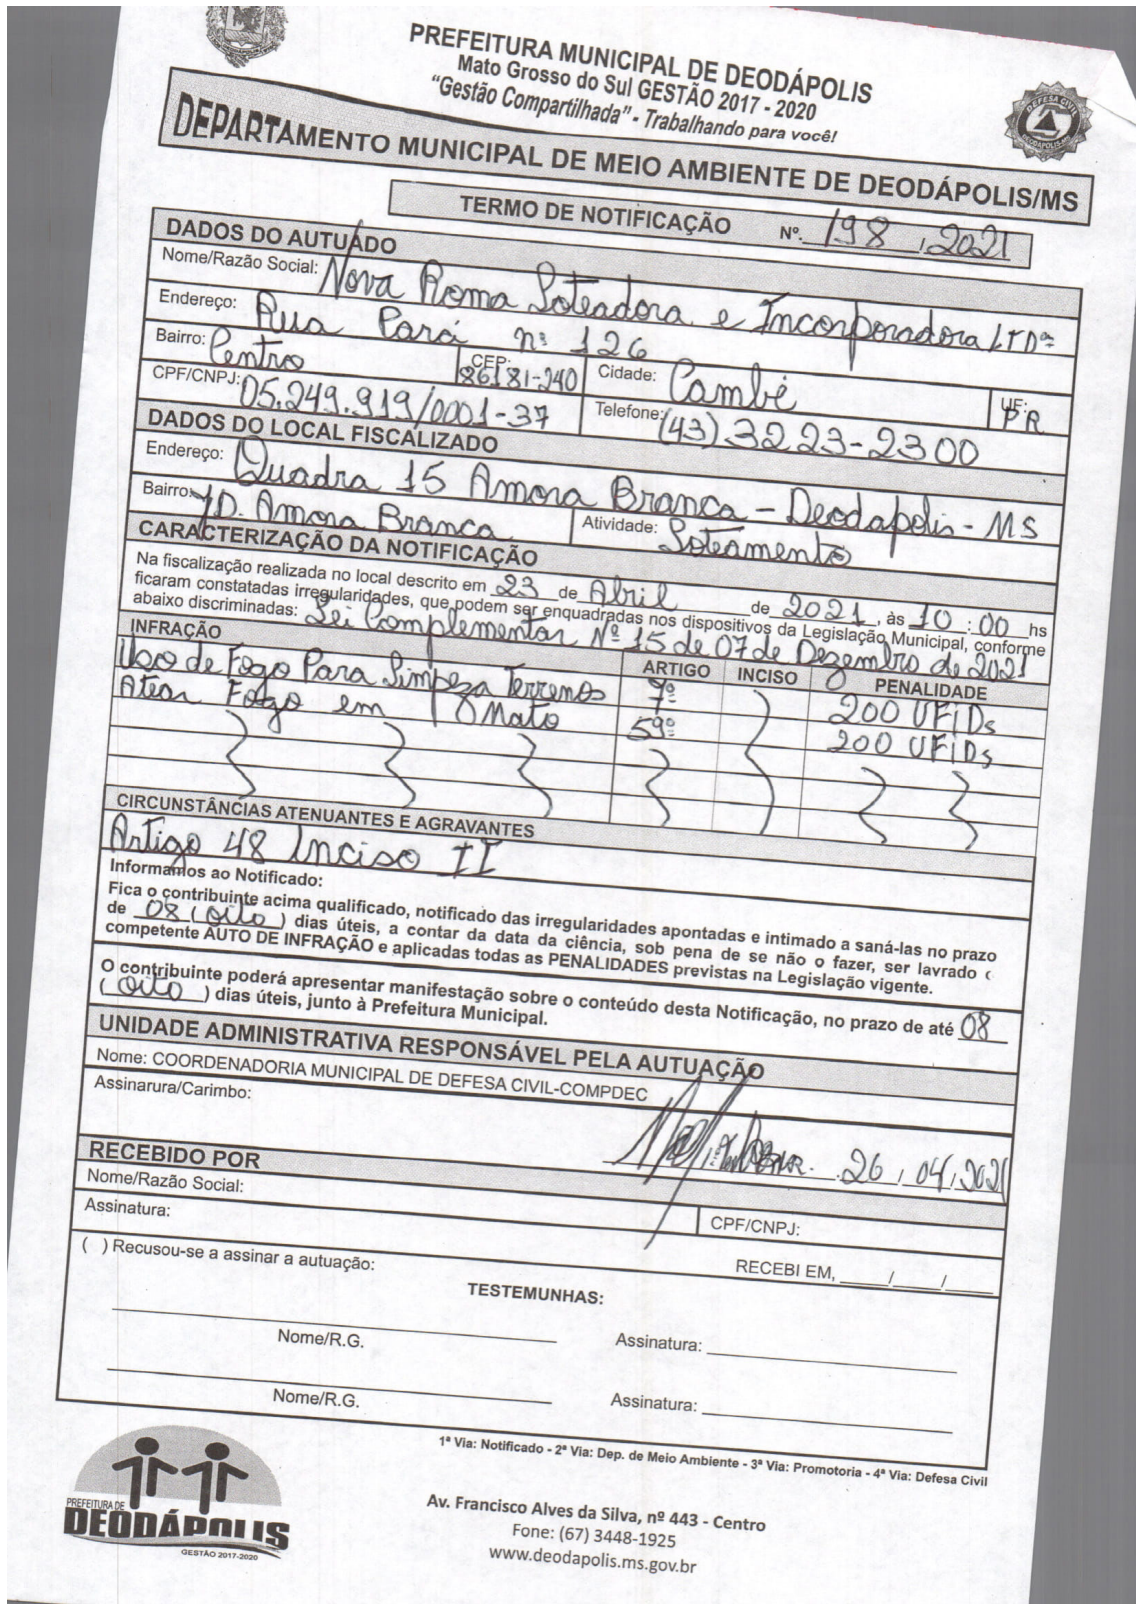 PREFEITURA MUNICIPAL DE DEODÁPOLIS
Mato Grosso do Sul GESTÃO 2017 - 2020
"Gestão Compartilhada" - Trabalhando para você!
DEFESA CIVIL
DEODÁPOLIS
DEPARTAMENTO MUNICIPAL DE MEIO AMBIENTE DE DEODÁPOLIS/MS
TERMO DE NOTIFICAÇÃO Nº. 198 / 2021
DADOS DO AUTUADO
Nome/Razão Social: Nova Roma Loteadora e Incorporadora LTDª
Endereço: Rua Pará nº 126
Bairro: Centro CEP: 86181-240 Cidade: Cambé UF: PR
CPF/CNPJ: 05.249.919/0001-37 Telefone: (43) 3223-2300
DADOS DO LOCAL FISCALIZADO
Endereço: Quadra 15 Amora Branca - Deodapolis - MS
Bairro: JD. Amora Branca Atividade: Loteamento
CARACTERIZAÇÃO DA NOTIFICAÇÃO
Na fiscalização realizada no local descrito em 23 de Abril de 2021, às 10:00 hs
ficaram constatadas irregularidades, que podem ser enquadradas nos dispositivos da Legislação Municipal, conforme
abaixo discriminadas: Lei Complementar Nº 15 de 07 de Dezembro de 2021
INFRAÇÃO ARTIGO INCISO PENALIDADE
Uso de Fogo Para Limpeza Terrenos 7º 200 UFIDs
Atear Fogo em Mato 59º 200 UFIDs
CIRCUNSTÂNCIAS ATENUANTES E AGRAVANTES
Artigo 48 Inciso II
Informamos ao Notificado:
Fica o contribuinte acima qualificado, notificado das irregularidades apontadas e intimado a saná-las no prazo
de 08 (oito) dias úteis, a contar da data da ciência, sob pena de se não o fazer, ser lavrado o
competente AUTO DE INFRAÇÃO e aplicadas todas as PENALIDADES previstas na Legislação vigente.
O contribuinte poderá apresentar manifestação sobre o conteúdo desta Notificação, no prazo de até 08
(oito) dias úteis, junto à Prefeitura Municipal.
UNIDADE ADMINISTRATIVA RESPONSÁVEL PELA AUTUAÇÃO
Nome: COORDENADORIA MUNICIPAL DE DEFESA CIVIL-COMPDEC
Assinarura/Carimbo:
26 / 04 / 2021
RECEBIDO POR
Nome/Razão Social:
Assinatura: CPF/CNPJ:
( ) Recusou-se a assinar a autuação: RECEBI EM, ____/____/____
TESTEMUNHAS:
Nome/R.G. Assinatura:
Nome/R.G. Assinatura:
1ª Via: Notificado - 2ª Via: Dep. de Meio Ambiente - 3ª Via: Promotoria - 4ª Via: Defesa Civil
PREFEITURA DE
DEODÁPOLIS
GESTÃO 2017-2020
Av. Francisco Alves da Silva, nº 443 - Centro
Fone: (67) 3448-1925
www.deodapolis.ms.gov.br